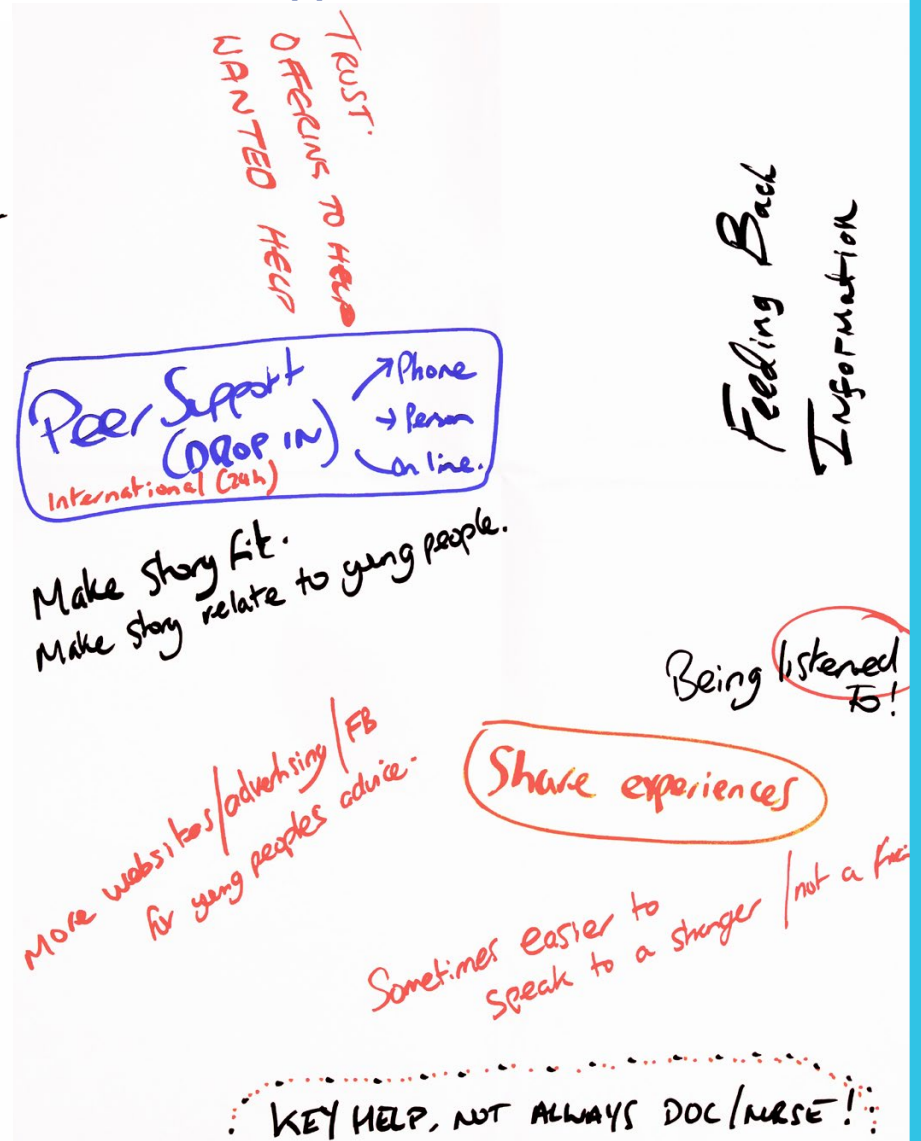 TRUST.
OFFERING TO HELP
WANTED HELP
Feeding Back
Information
Peer Support
(DROP IN)
International (24h)
Phone
Person
online.
Make story fit.
Make story relate to young people.
Being listened
To!
More websites/advertising/FB
for young peoples advice.
Share experiences
Sometimes easier to
speak to a stranger / not a
KEY HELP, NOT ALWAYS DOC/NURSE!